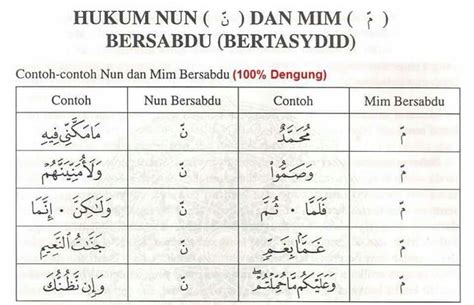 HUKUM NUN ( نّ ) DAN MIM ( مّ )
BERSABDU (BERTASYDID)
Contoh-contoh Nun dan Mim Bersabdu (100% Dengung)
Contoh Nun Bersabdu Contoh Mim Bersabdu
مَامَكَّنِّى فِيهِ نّ مُحَمَّدٌ مّ
وَلَأُمَنِّيَنَّهُمْ نّ وَصَمُّوا۟ مّ
وَلَـٰكِنَّ ۰ إِنَّمَا نّ فَلَمَّا ۰ ثُمَّ مّ
جَنَّـٰتُ ٱلنَّعِيمِ نّ غَمًّۢا بِغَمٍّ مّ
وَإِن نَّظُنُّكَ نّ وَعَلَيْكُم مَّا حُمِّلْتُمْ مّ